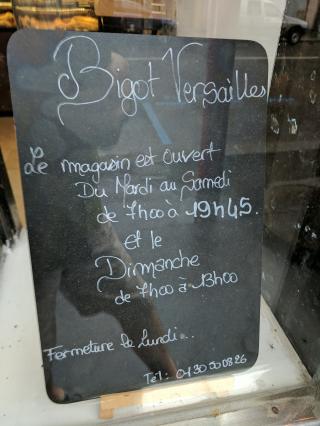 Bigot Versailles
Le magasin est ouvert
Du Mardi au Samedi
de 7h00 à 19h45.
et le
Dimanche
de 7h00 à 13h00
Fermeture le Lundi..
Tel: 0130500826